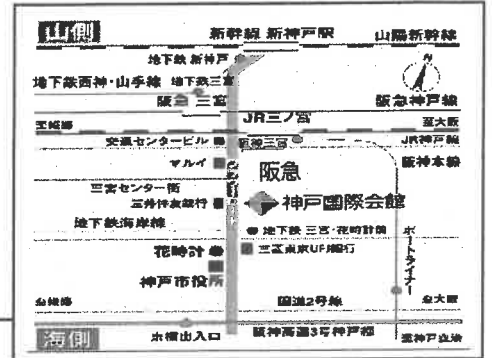 山側
新幹線 新神戸駅
山陽新幹線
地下鉄 新神戸
N
地下鉄西神・山手線
地下鉄三宮
阪急 三宮
阪急神戸線
JR三ノ宮
至姫路
至大阪
交通センタービル
阪神三宮
JR神戸線
マルイ
阪急
阪神本線
三宮センター街
三井住友銀行
神戸國際会館
地下鉄海岸線
地下鉄 三宮・花時計前
花時計
三菱東京UFJ銀行
ポートライナー
神戸市役所
至姫路
国道2号線
至大阪
海側
京橋出入口
阪神高速3号神戸線
至神戸空港